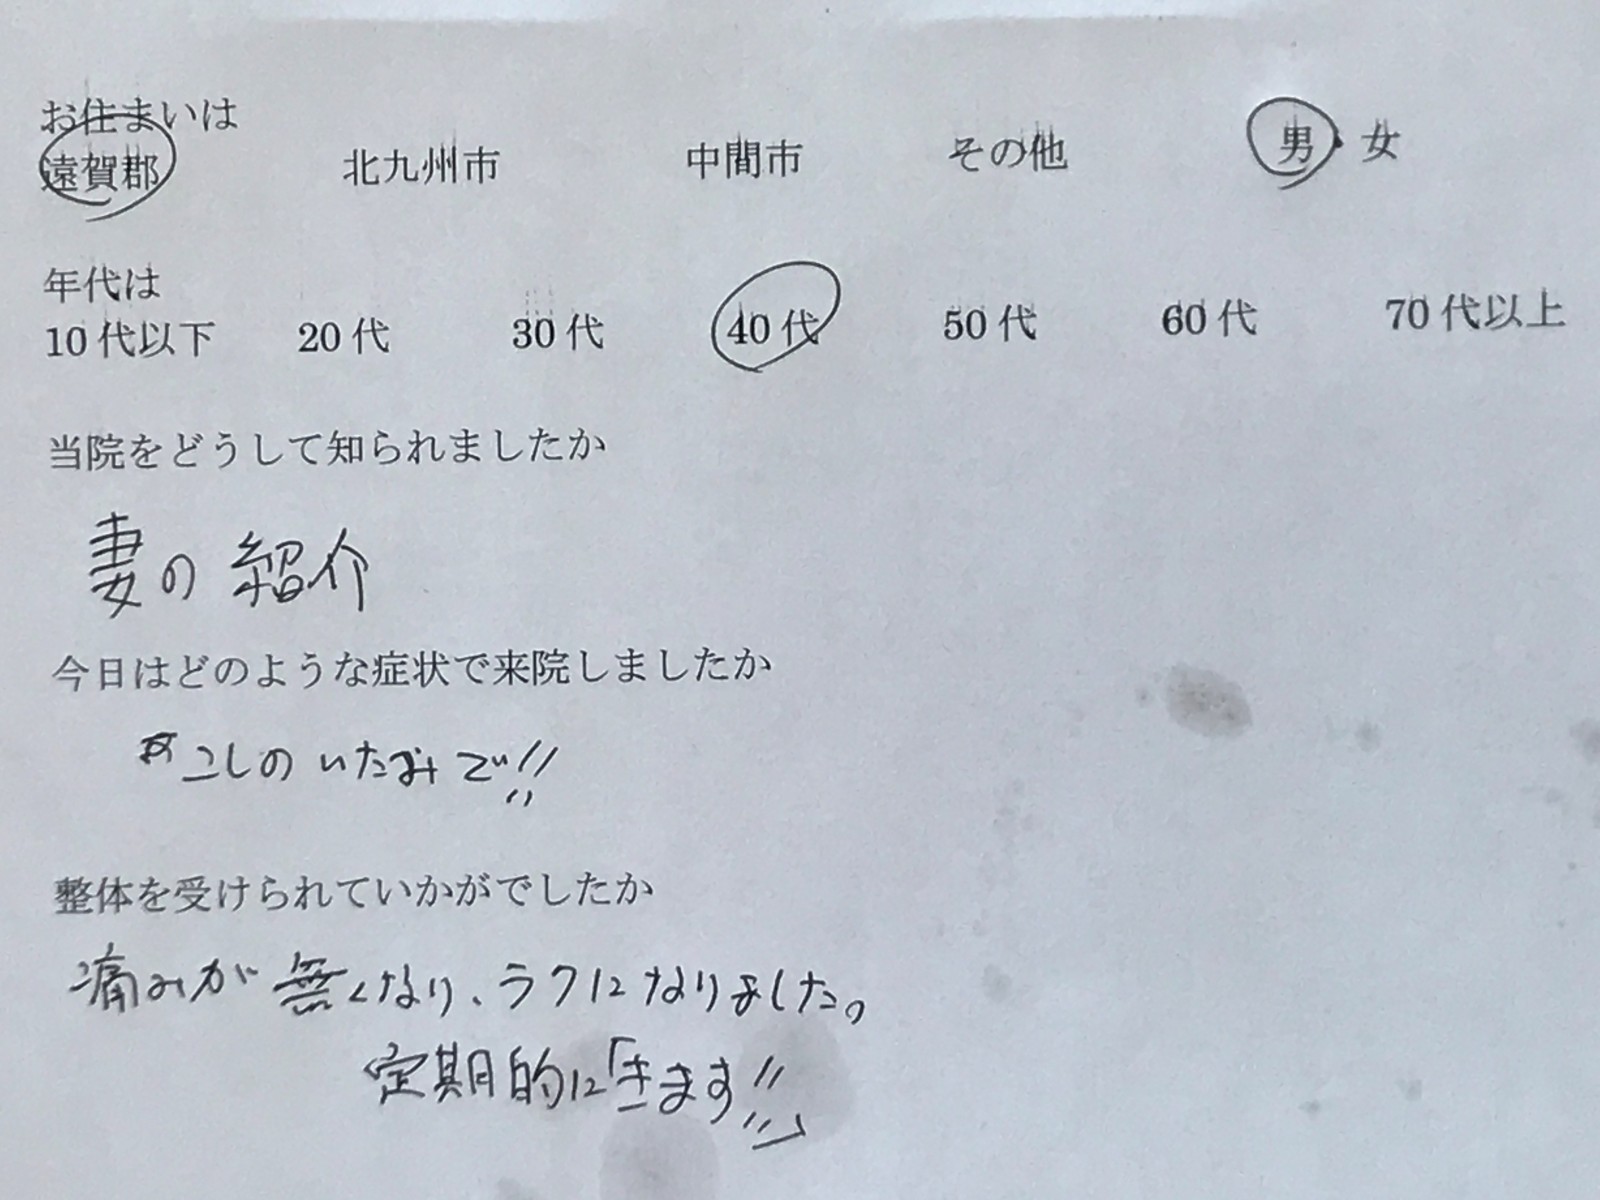 お住まいは
遠賀郡 北九州市 中間市 その他 男・女
年代は
10代以下 20代 30代 40代 50代 60代 70代以上
当院をどうして知られましたか
妻の紹介
今日はどのような症状で来院しましたか
こしのいたみで!!
整体を受けられていかがでしたか
痛みが無くなり、ラクになりました。
定期的に「きます!!」